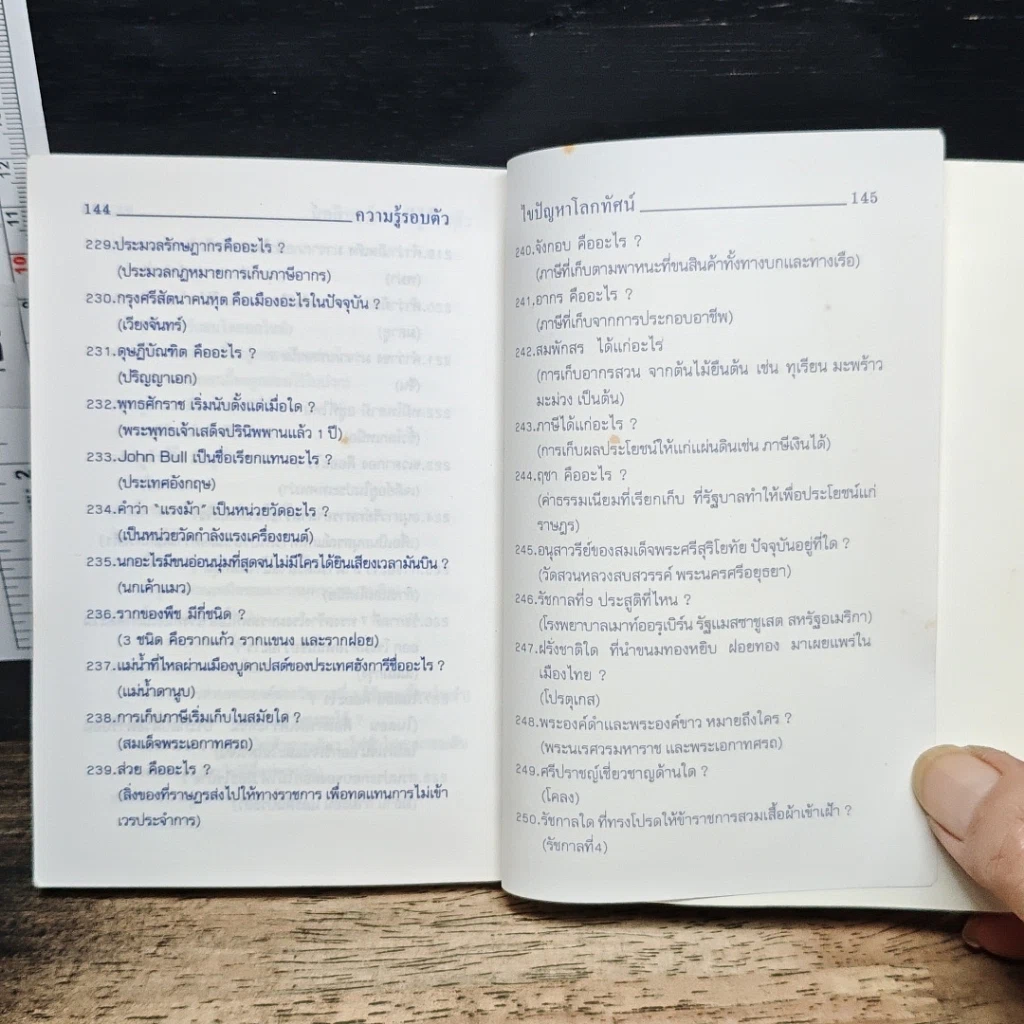 144 ความรู้รอบตัว
229.ประมวลรัษฎากรคืออะไร ?
(ประมวลกฎหมายการเก็บภาษีอากร)
230.กรุงศรีสัตนาคนหุต คือเมืองอะไรในปัจจุบัน ?
(เวียงจันทร์)
231.ดุษฎีบัณฑิต คืออะไร ?
(ปริญญาเอก)
232.พุทธศักราช เริ่มนับตั้งแต่เมื่อใด ?
(พระพุทธเจ้าเสด็จปรินิพพานแล้ว 1 ปี)
233.John Bull เป็นชื่อเรียกแทนอะไร ?
(ประเทศอังกฤษ)
234.คำว่า "แรงม้า" เป็นหน่วยวัดอะไร ?
(เป็นหน่วยวัดกำลังแรงเครื่องยนต์)
235.นกอะไรมีขนอ่อนนุ่มที่สุดจนไม่มีใครได้ยินเสียงเวลามันบิน ?
(นกเค้าแมว)
236.รากของพืช มีกี่ชนิด ?
(3 ชนิด คือรากแก้ว รากแขนง และรากฝอย)
237.แม่น้ำที่ไหลผ่านเมืองบูดาเปสต์ของประเทศฮังการีชื่ออะไร ?
(แม่น้ำดานูบ)
238.การเก็บภาษีเริ่มเก็บในสมัยใด ?
(สมเด็จพระเอกาทศรถ)
239.ส่วย คืออะไร ?
(สิ่งของที่ราษฎรส่งไปให้ทางราชการ เพื่อทดแทนการไม่เข้า
เวรประจำการ)
ไขปัญหาโลกทัศน์ 145
240.จังกอบ คืออะไร ?
(ภาษีที่เก็บตามพาหนะที่ขนสินค้าทั้งทางบกและทางเรือ)
241.อากร คืออะไร ?
(ภาษีที่เก็บจากการประกอบอาชีพ)
242.สมพักสร ได้แก่อะไร
(การเก็บอากรสวน จากต้นไม้ยืนต้น เช่น ทุเรียน มะพร้าว
มะม่วง เป็นต้น)
243.ภาษีได้แก่อะไร ?
(การเก็บผลประโยชน์ให้แก่แผ่นดินเช่น ภาษีเงินได้)
244.ฤชา คืออะไร ?
(ค่าธรรมเนียมที่เรียกเก็บ ที่รัฐบาลทำให้เพื่อประโยชน์แก่
ราษฎร)
245.อนุสาวรีย์ของสมเด็จพระศรีสุริโยทัย ปัจจุบันอยู่ที่ใด ?
(วัดสวนหลวงสบสวรรค์ พระนครศรีอยุธยา)
246.รัชกาลที่9 ประสูติที่ไหน ?
(โรงพยาบาลเมาท์ออรุเบิร์น รัฐแมสซาชูเสต สหรัฐอเมริกา)
247.ฝรั่งชาติใด ที่นำขนมทองหยิบ ฝอยทอง มาเผยแพร่ใน
เมืองไทย ?
(โปรตุเกส)
248.พระองค์ดำและพระองค์ขาว หมายถึงใคร ?
(พระนเรศวรมหาราช และพระเอกาทศรถ)
249.ศรีปราชญ์เชี่ยวชาญด้านใด ?
(โคลง)
250.รัชกาลใด ที่ทรงโปรดให้ข้าราชการสวมเสื้อผ้าเข้าเฝ้า ?
(รัชกาลที่4)
12
11
10
9
2